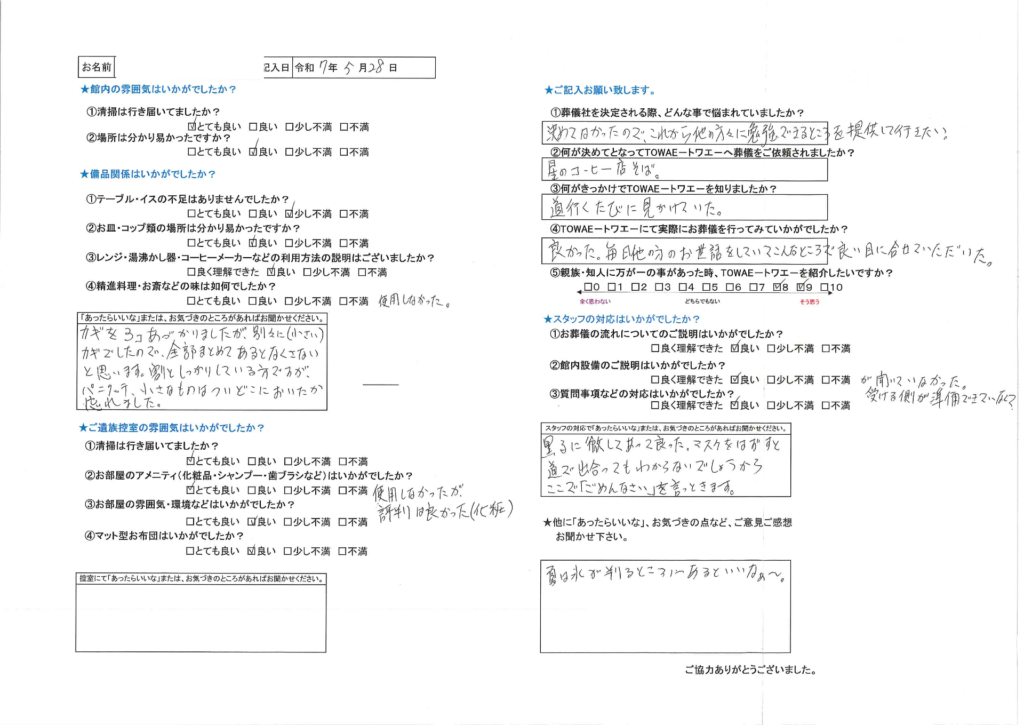 お名前
記入日 令和 7年 5月 28日
★館内の雰囲気はいかがでしたか？
①清掃は行き届いてましたか？
☑とても良い □良い □少し不満 □不満
②場所は分かり易かったですか？
□とても良い ☑良い □少し不満 □不満
★備品関係はいかがでしたか？
①テーブル・イスの不足はありませんでしたか？
□とても良い □良い ☑少し不満 □不満
②お皿・コップ類の場所は分かり易かったですか？
□とても良い ☑良い □少し不満 □不満
③レンジ・湯沸かし器・コーヒーメーカーなどの利用方法の説明はございましたか？
□良く理解できた ☑良い □少し不満 □不満
④精進料理・お斎などの味は如何でしたか？
□とても良い □良い □少し不満 □不満 使用しなかった。
「あったらいいな」または、お気づきのところがあればお聞かせください。
カギを3コあづかりましたが、別々に(小さい)
カギでしたので、全部まとめてあるとなくさない
と思います。割としっかりしている方ですが、
パニックって、小さなものはついどこにおいたか
忘れました。
★ご遺族控室の雰囲気はいかがでしたか？
①清掃は行き届いてましたか？
☑とても良い □良い □少し不満 □不満
②お部屋のアメニティ（化粧品・シャンプー・歯ブラシなど）はいかがでしたか？
☑とても良い □良い □少し不満 □不満 使用しなかったが、
評判は良かった(化粧)
③お部屋の雰囲気・環境などはいかがでしたか？
□とても良い ☑良い □少し不満 □不満
④マット型お布団はいかがでしたか？
□とても良い ☑良い □少し不満 □不満
控室にて「あったらいいな」または、お気づきのところがあればお聞かせください。
★ご記入お願い致します。
①葬儀社を決定される際、どんな事で悩まれていましたか？
決めてなかったので、これから他の方々に勉強できるところを提供して行きたい？
②何が決めてとなってTOWAEートワエーへ葬儀をご依頼されましたか？
星のコーヒー店そば。
③何がきっかけでTOWAEートワエーを知りましたか？
道行くたびに見かけていた。
④TOWAEートワエーにて実際にお葬儀を行ってみていかがでしたか？
良かった。毎日他の方のお世話をしていてこんなところで良い目に合せていただいた。
⑤親族・知人に万が一の事があった時、TOWAEートワエーを紹介したいですか？
□0 □1 □2 □3 □4 □5 □6 □7 ☑8 ☑9 □10
全く思わない どちらでもない そう思う
★スタッフの対応はいかがでしたか？
①お葬儀の流れについてのご説明はいかがでしたか？
□良く理解できた ☑良い □少し不満 □不満
②館内設備のご説明はいかがでしたか？
□良く理解できた ☑良い □少し不満 □不満 が聞いていなかった。
③質問事項などの対応はいかがでしたか？
受ける側が準備できていなくて
□良く理解できた ☑良い □少し不満 □不満
スタッフの対応で「あったらいいな」または、お気づきのところがあればお聞かせください。
黒子に徹してあって良った。マスクをはずすと
道で出合ってもわからないでしょうから
ここで「ごめんなさい」を言っときます。
★他に「あったらいいな」、お気づきの点など、ご意見ご感想
お聞かせ下さい。
夏は氷が判るところにあるといいなぁ〜。
ご協力ありがとうございました。